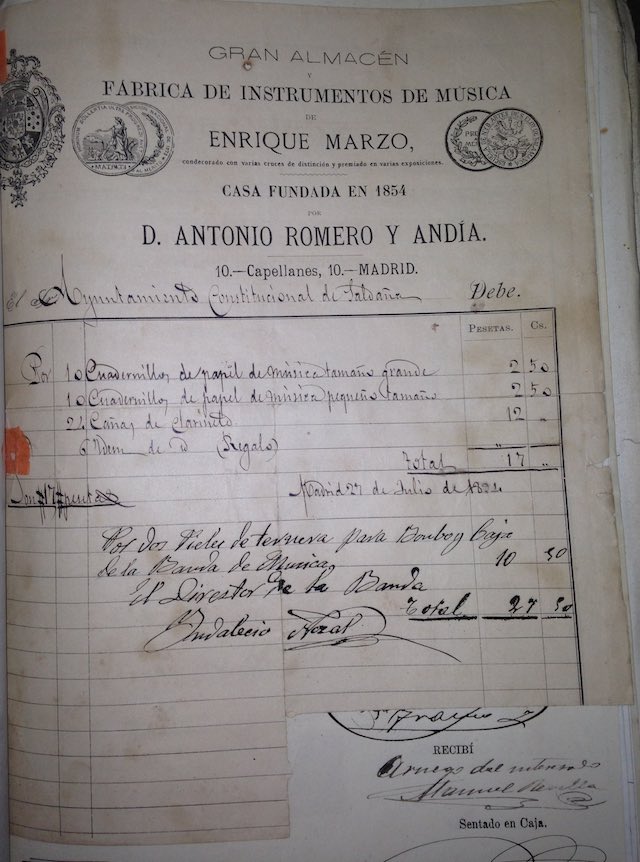 GRAN ALMACÉN
Y
FÁBRICA DE INSTRUMENTOS DE MÚSICA
DE
ENRIQUE MARZO,
condecorado con varias cruces de distinción y premiado en varias exposiciones.
CASA FUNDADA EN 1854
POR
D. ANTONIO ROMERO Y ANDÍA.
10.—Capellanes, 10.—MADRID.
El Ayuntamiento Constitucional de Saldaña Debe.
PESETAS. Cs.
Por 10 Cuadernillos de papel de música tamaño grande 2 50
10 Cuadernillos de papel de música pequeño tamaño 2 50
24 Cañas de clarinete 12 "
6 Idem de id (Regalo) " "
Total 17 "
Son #17# pesetas Madrid 27 de Julio de
Por dos Pieles de ternera para Bombo y Caja
de la Banda de Musica 10 50
El Director de la Banda
Total 27 50
Indalecio Nozal
RECIBÍ
Aruego del interesado
Manuel
Sentado en Caja.